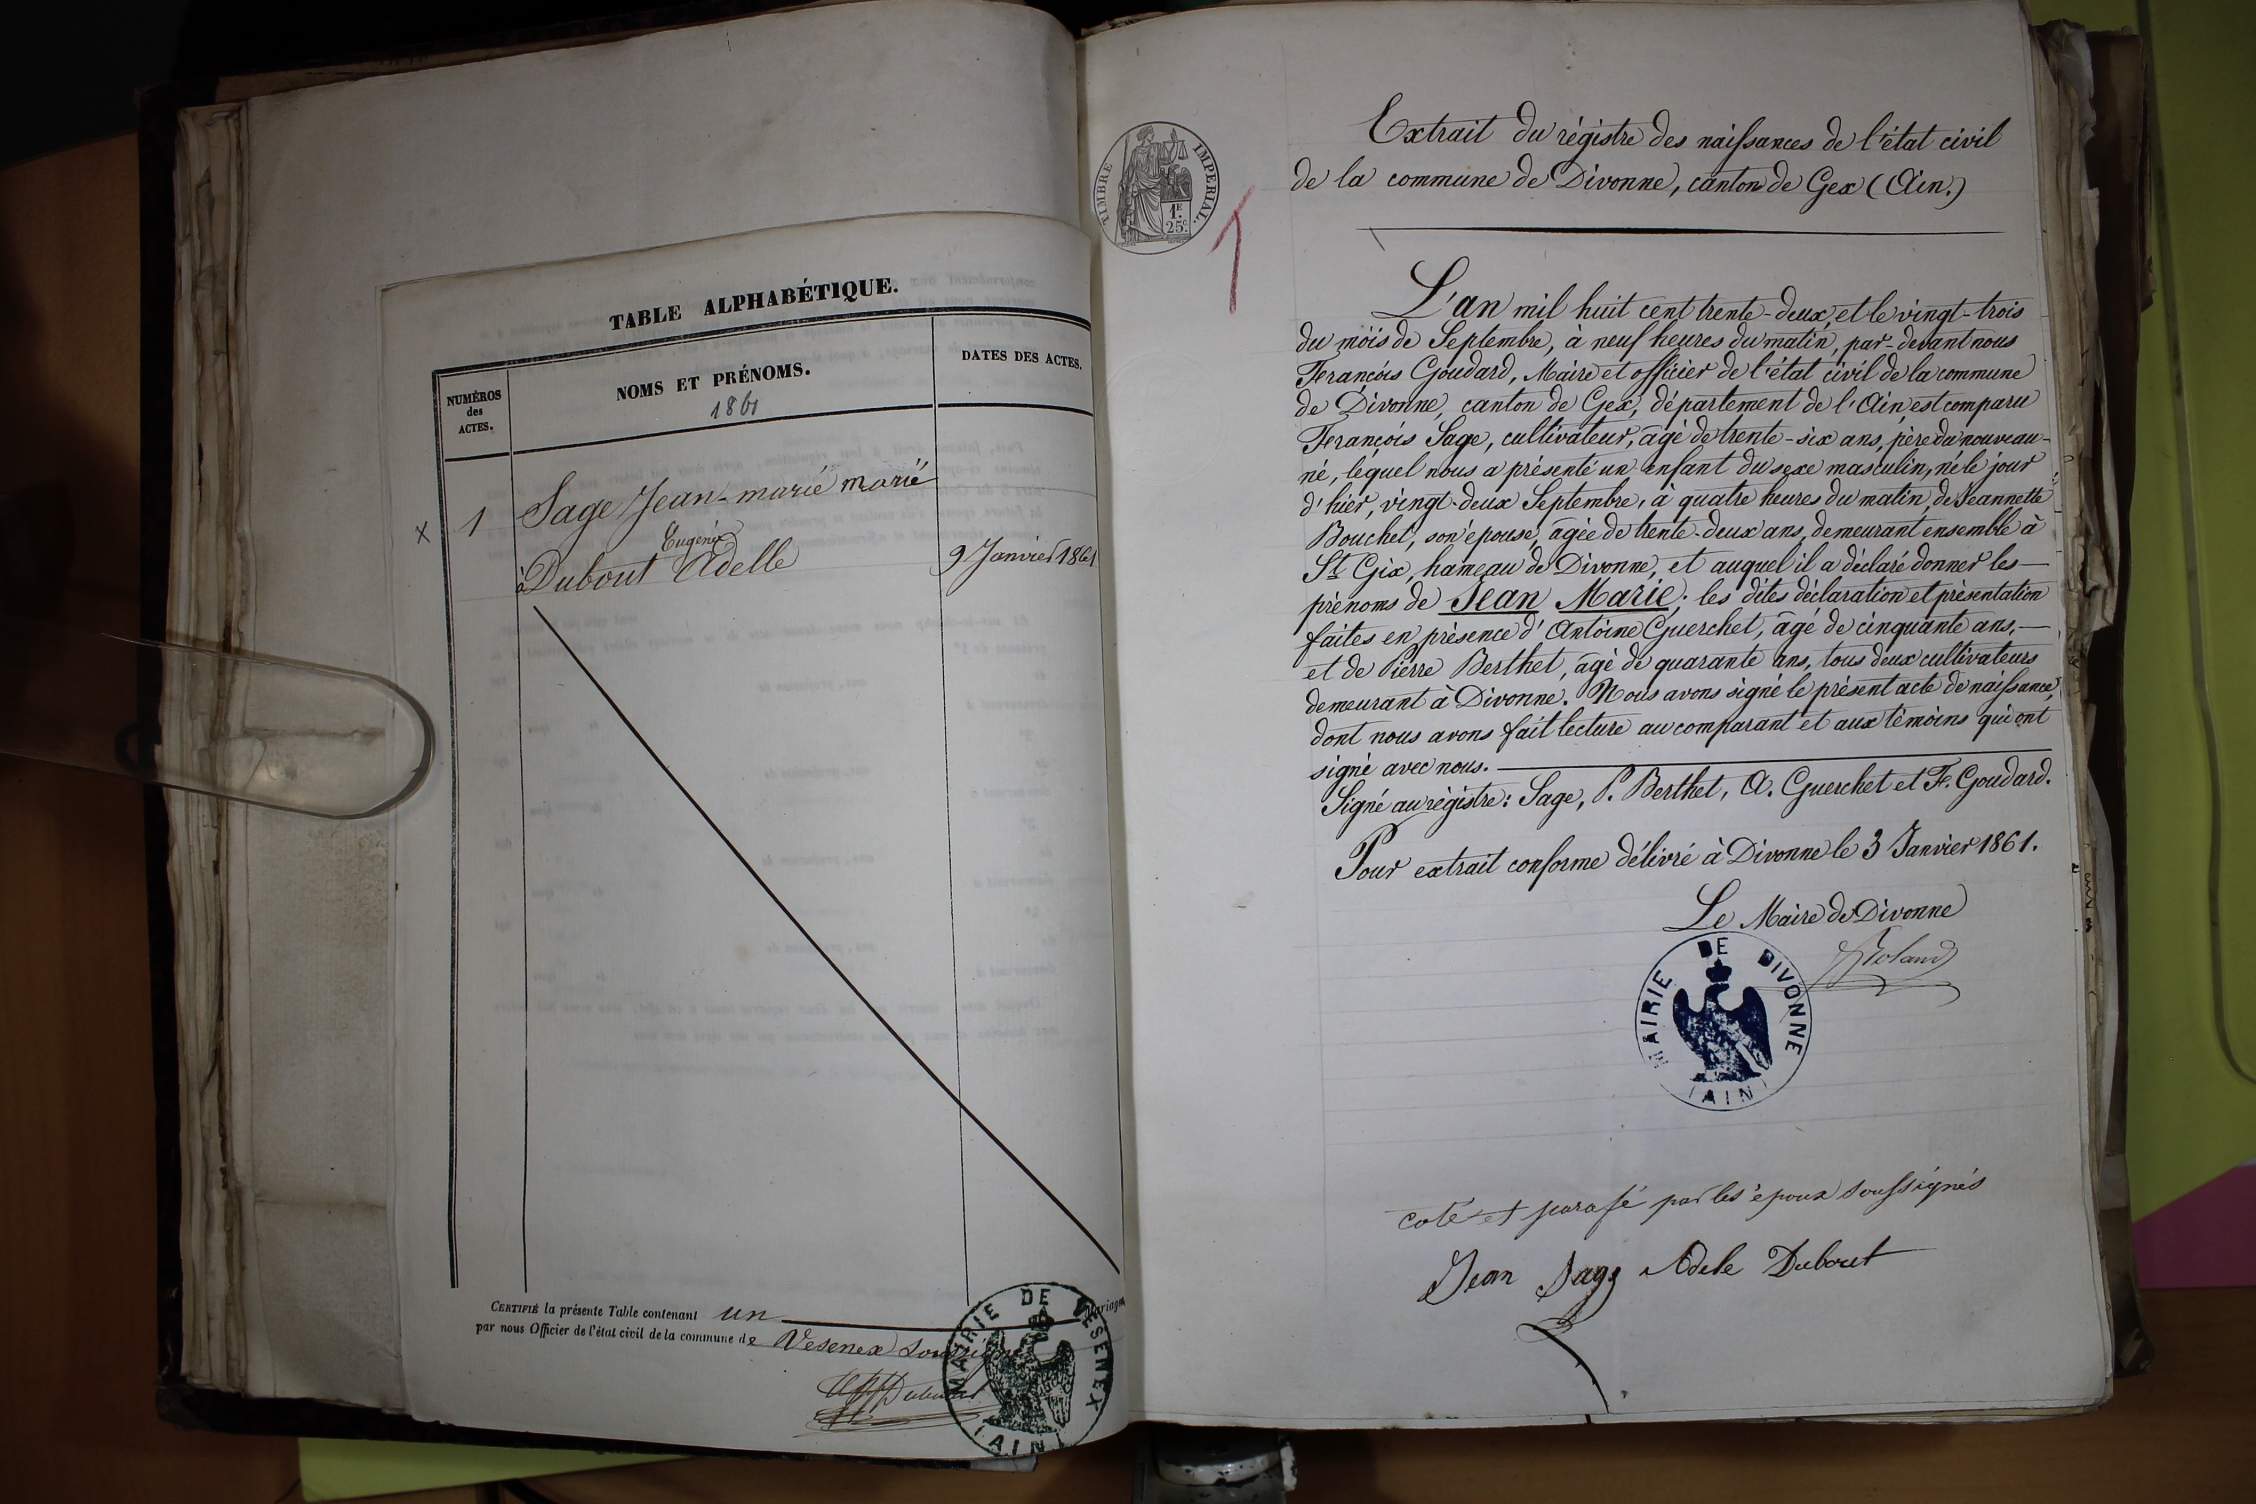 TABLE ALPHABÉTIQUE.
NUMÉROS des ACTES.
NOMS ET PRÉNOMS.
1861
DATES DES ACTES.
X 1 Sage Jean-marie marié
Eugénie
à Dubout Adelle 9 Janvier 1861
CERTIFIÉ la présente Table contenant un Mariage
par nous Officier de l'état civil de la commune de Vesenex soussigné
MAIRIE DE VESENEX
(AIN)
TIMBRE IMPERIAL.
1F.
25c.
1
Extrait du régistre des naissances de l'état civil
de la commune de Divonne, canton de Gex (Ain.)
L'an mil huit cent trente-deux, et le vingt-trois
du mois de Septembre, à neuf heures du matin, par-devant nous
François Goudard, Maire et officier de l'état civil de la commune
de Divonne, canton de Gex, département de l'Ain, est comparu
François Sage, cultivateur, âgé de trente-six ans, père du nouveau-
né, lequel nous a présenté un enfant du sexe masculin, né le jour
d'hier, vingt-deux Septembre, à quatre heures du matin, de Jeannette
Bouchet, son épouse, âgée de trente-deux ans, demeurant ensemble à
St Gix, hameau de Divonne, et auquel il a déclaré donner les —
prénoms de Jean Marie; les dites déclaration et présentation
faites en présence d'Antoine Guerchet, âgé de cinquante ans, —
et de Pierre Berthet, âgé de quarante ans, tous deux cultivateurs
demeurant à Divonne. Nous avons signé le présent acte de naissance,
dont nous avons fait lecture au comparant et aux témoins qui ont
signé avec nous. —
Signé au régistre: Sage, P. Berthet, A. Guerchet et F. Goudard.
Pour extrait conforme délivré à Divonne le 3 Janvier 1861.
Le Maire de Divonne
Roland
MAIRIE DE DIVONNE
(AIN)
coté et parafé par les époux soussignés
Jean Sage Adele Dubout